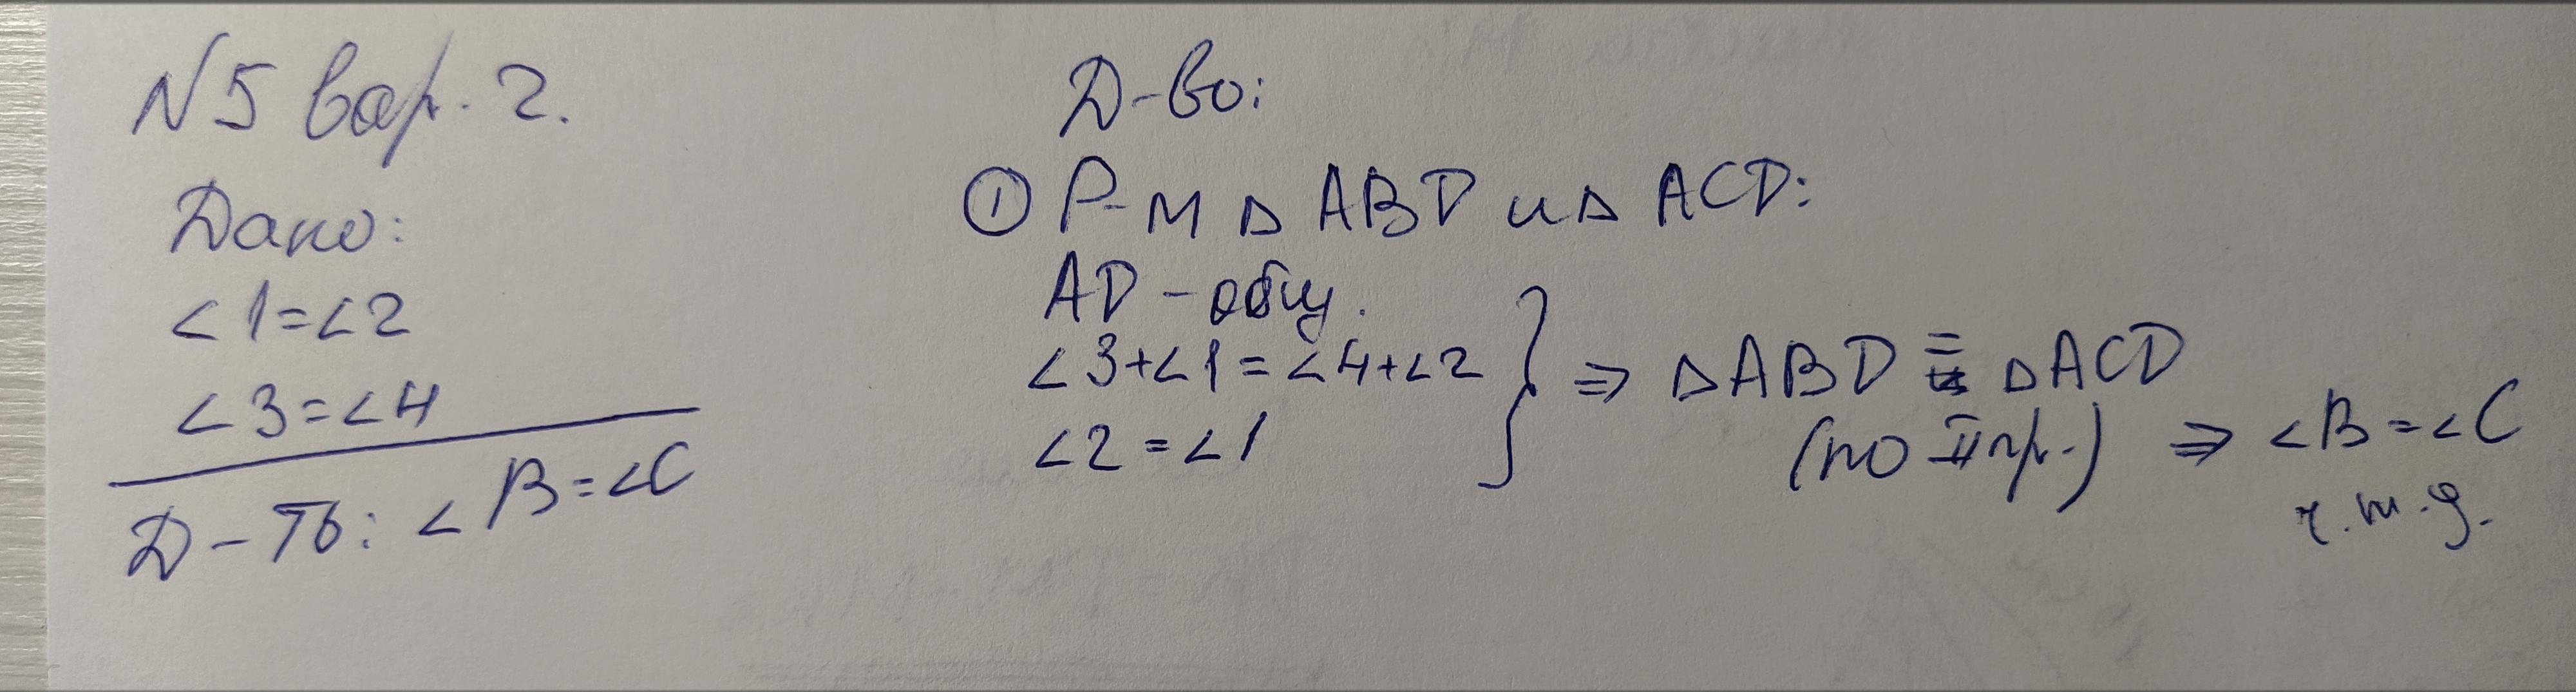 N5 вар. 2.
Дано:
∠1=∠2
∠3=∠4
Д-ть: ∠B=∠C
Д-во:
① Р-м △ ABD и △ ACD:
AD - общ.
∠3+∠1=∠4+∠2
∠2=∠1
} ⇒ △ABD = △ACD
(по II пр.) ⇒ ∠B=∠C
ч.т.д.